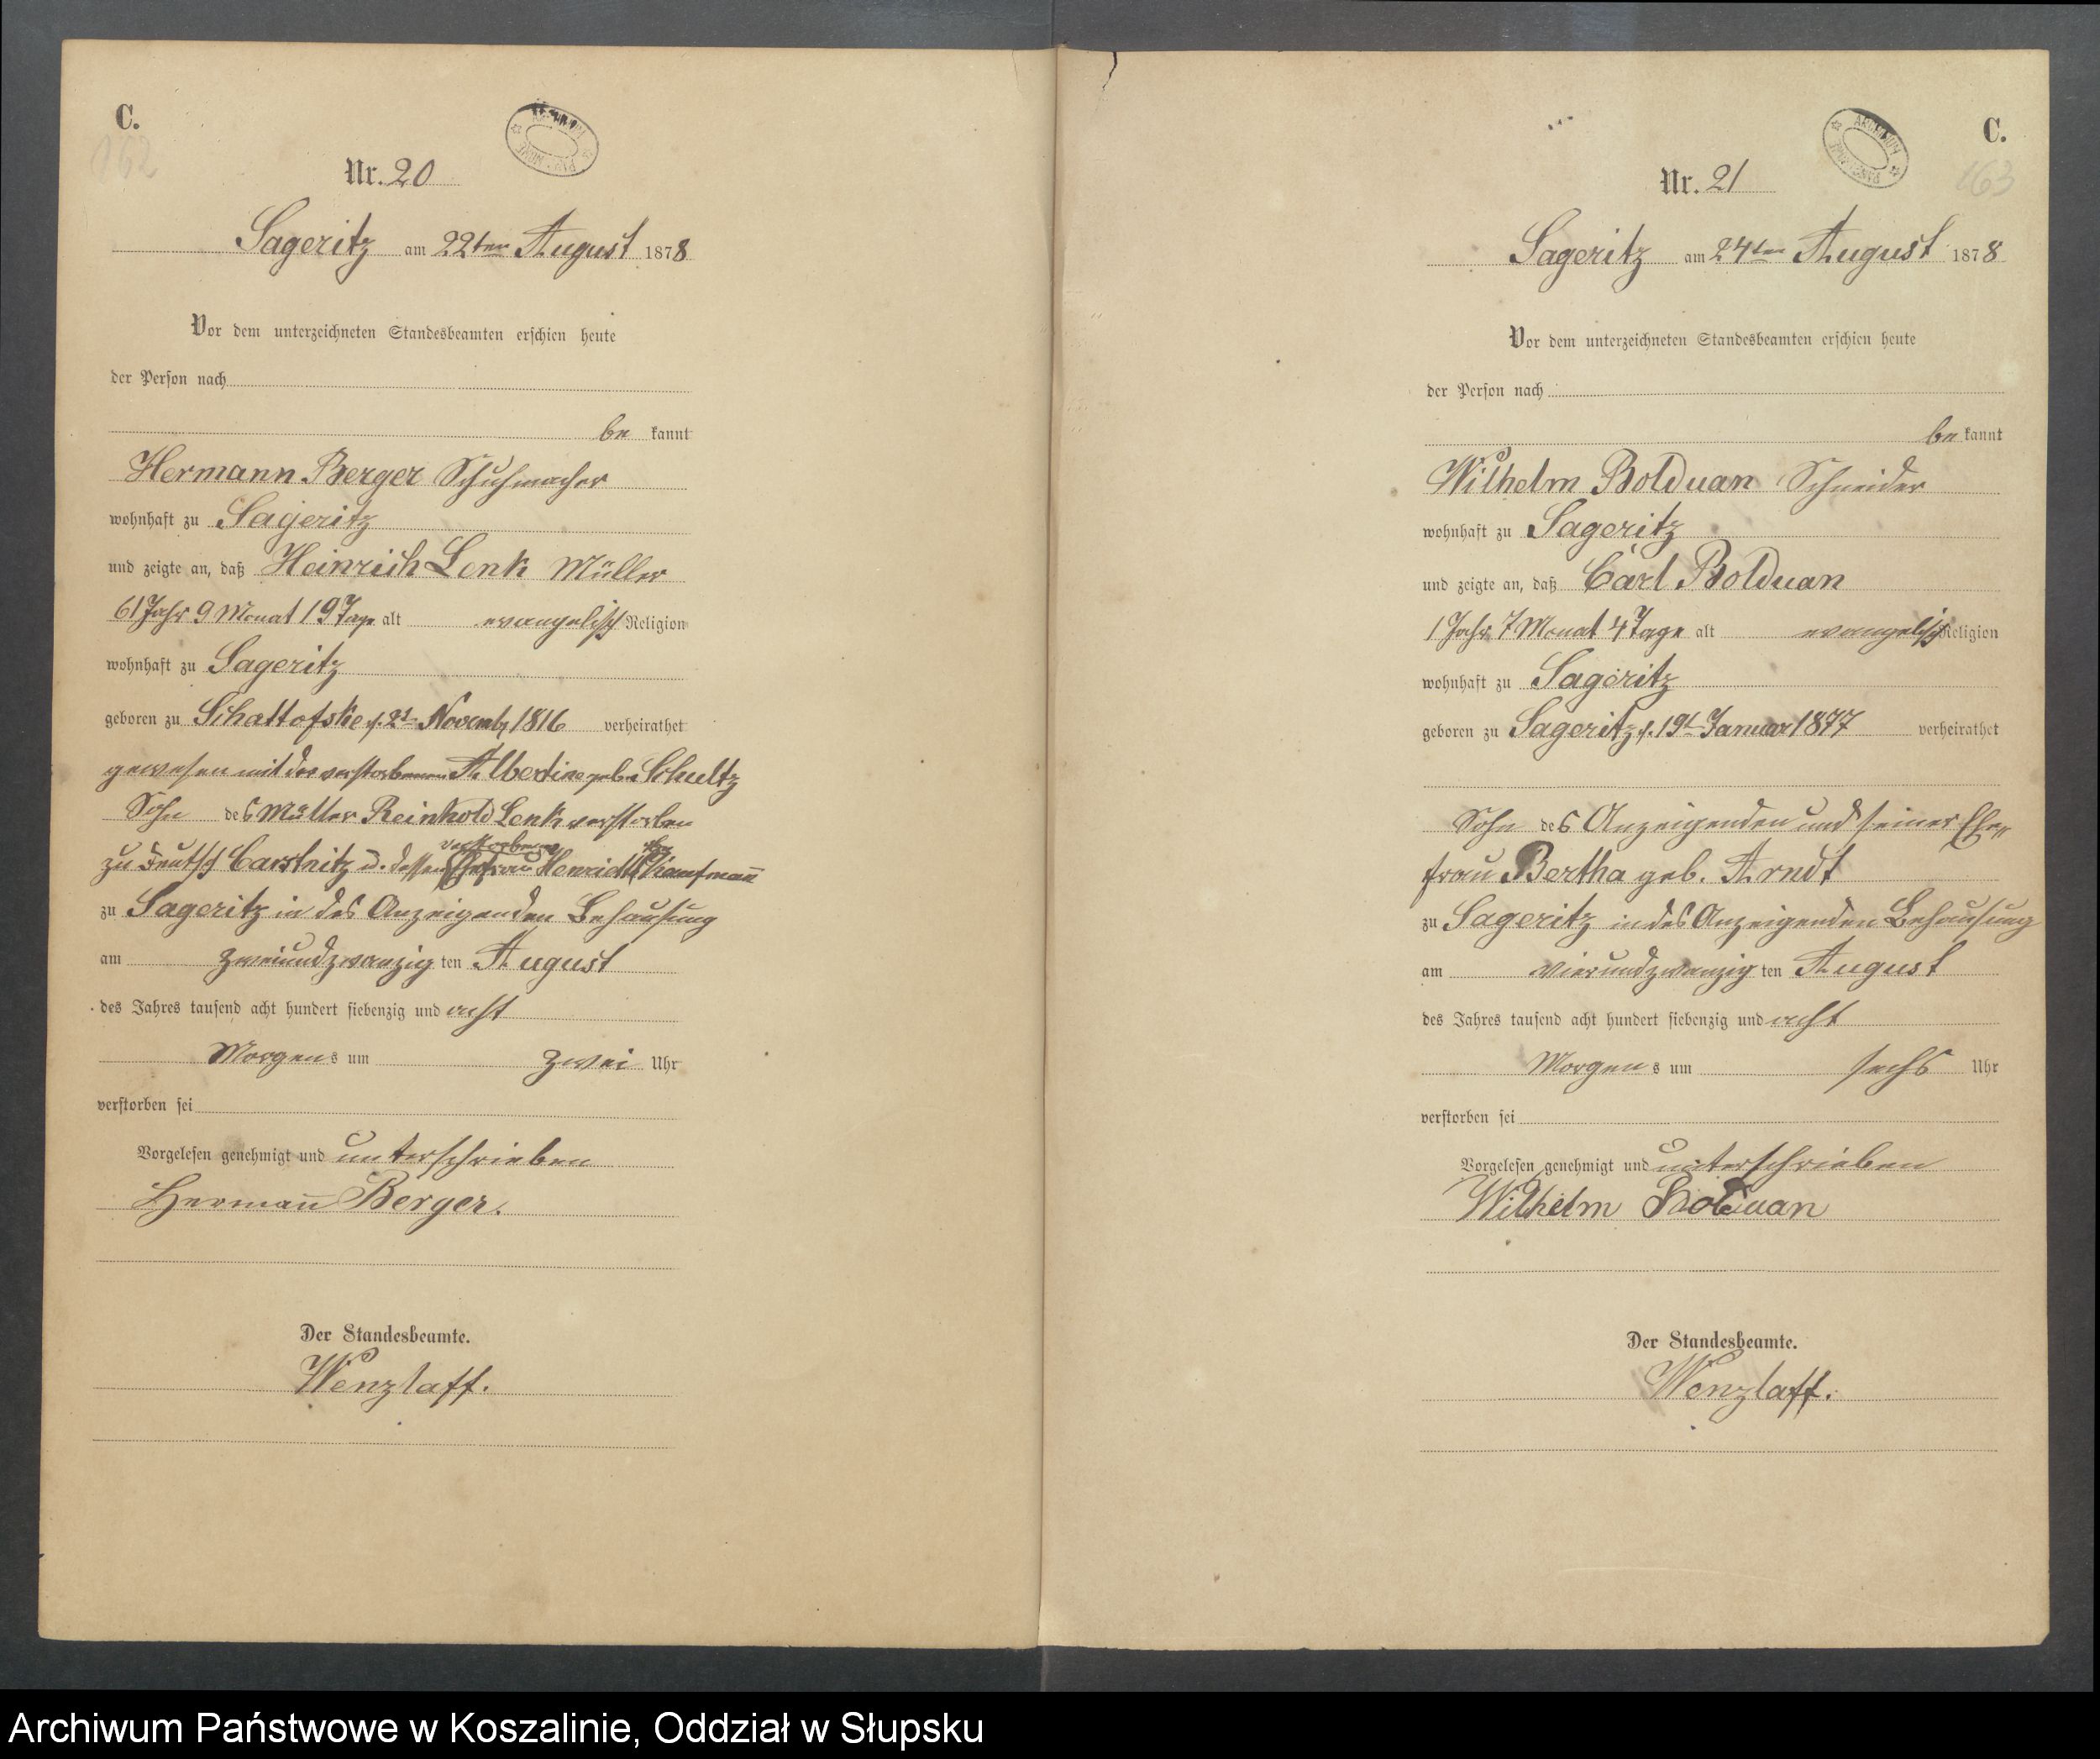 C.
162
Nr. 20
Sageritz am 22ten August 1878
Vor dem unterzeichneten Standesbeamten erschien heute
der Person nach
be kannt
Hermann Berger Schuhmacher
wohnhaft zu Sageritz
und zeigte an, daß Heinrich Lenk Müller
61 Jahr 9 Monat 19 Tage alt evangelisch Religion
wohnhaft zu Sageritz
geboren zu Schattofske d. 2t November 1816 verheirathet
gewesen mit der verstorbenen Albertine geb. Schultz
Sohn des Müller Reinhold Lenk verstorben
verstorbene geb.
zu Deutsch Carstnitz u. dessen Ehefrau Henriette Kaufmann
zu Sageritz in des Anzeigenden Behausung
am zweiundzwanzig ten August
des Jahres tausend acht hundert siebenzig und acht
Morgen s um zwei Uhr
verstorben sei
Vorgelesen genehmigt und unterschrieben
Hermann Berger.
Der Standesbeamte.
Wenzlaff.
C.
163
Nr. 21
Sageritz am 24ten August 1878
Vor dem unterzeichneten Standesbeamten erschien heute
der Person nach
be kannt
Wilhelm Bolduan Schneider
wohnhaft zu Sageritz
und zeigte an, daß Carl Bolduan
1 Jahr 7 Monat 4 Tage alt evangelisch Religion
wohnhaft zu Sageritz
geboren zu Sageritz d. 19t Januar 1877 verheirathet
Sohn des Anzeigenden und seiner Ehe„
frau Bertha geb. Arndt
zu Sageritz in des Anzeigenden Behausung
am vierundzwanzig ten August
des Jahres tausend acht hundert siebenzig und acht
Morgen s um sechs Uhr
verstorben sei
Vorgelesen genehmigt und unterschrieben
Wilhelm Bolduan
Der Standesbeamte.
Wenzlaff.
Archiwum Państwowe w Koszalinie, Oddział w Słupsku